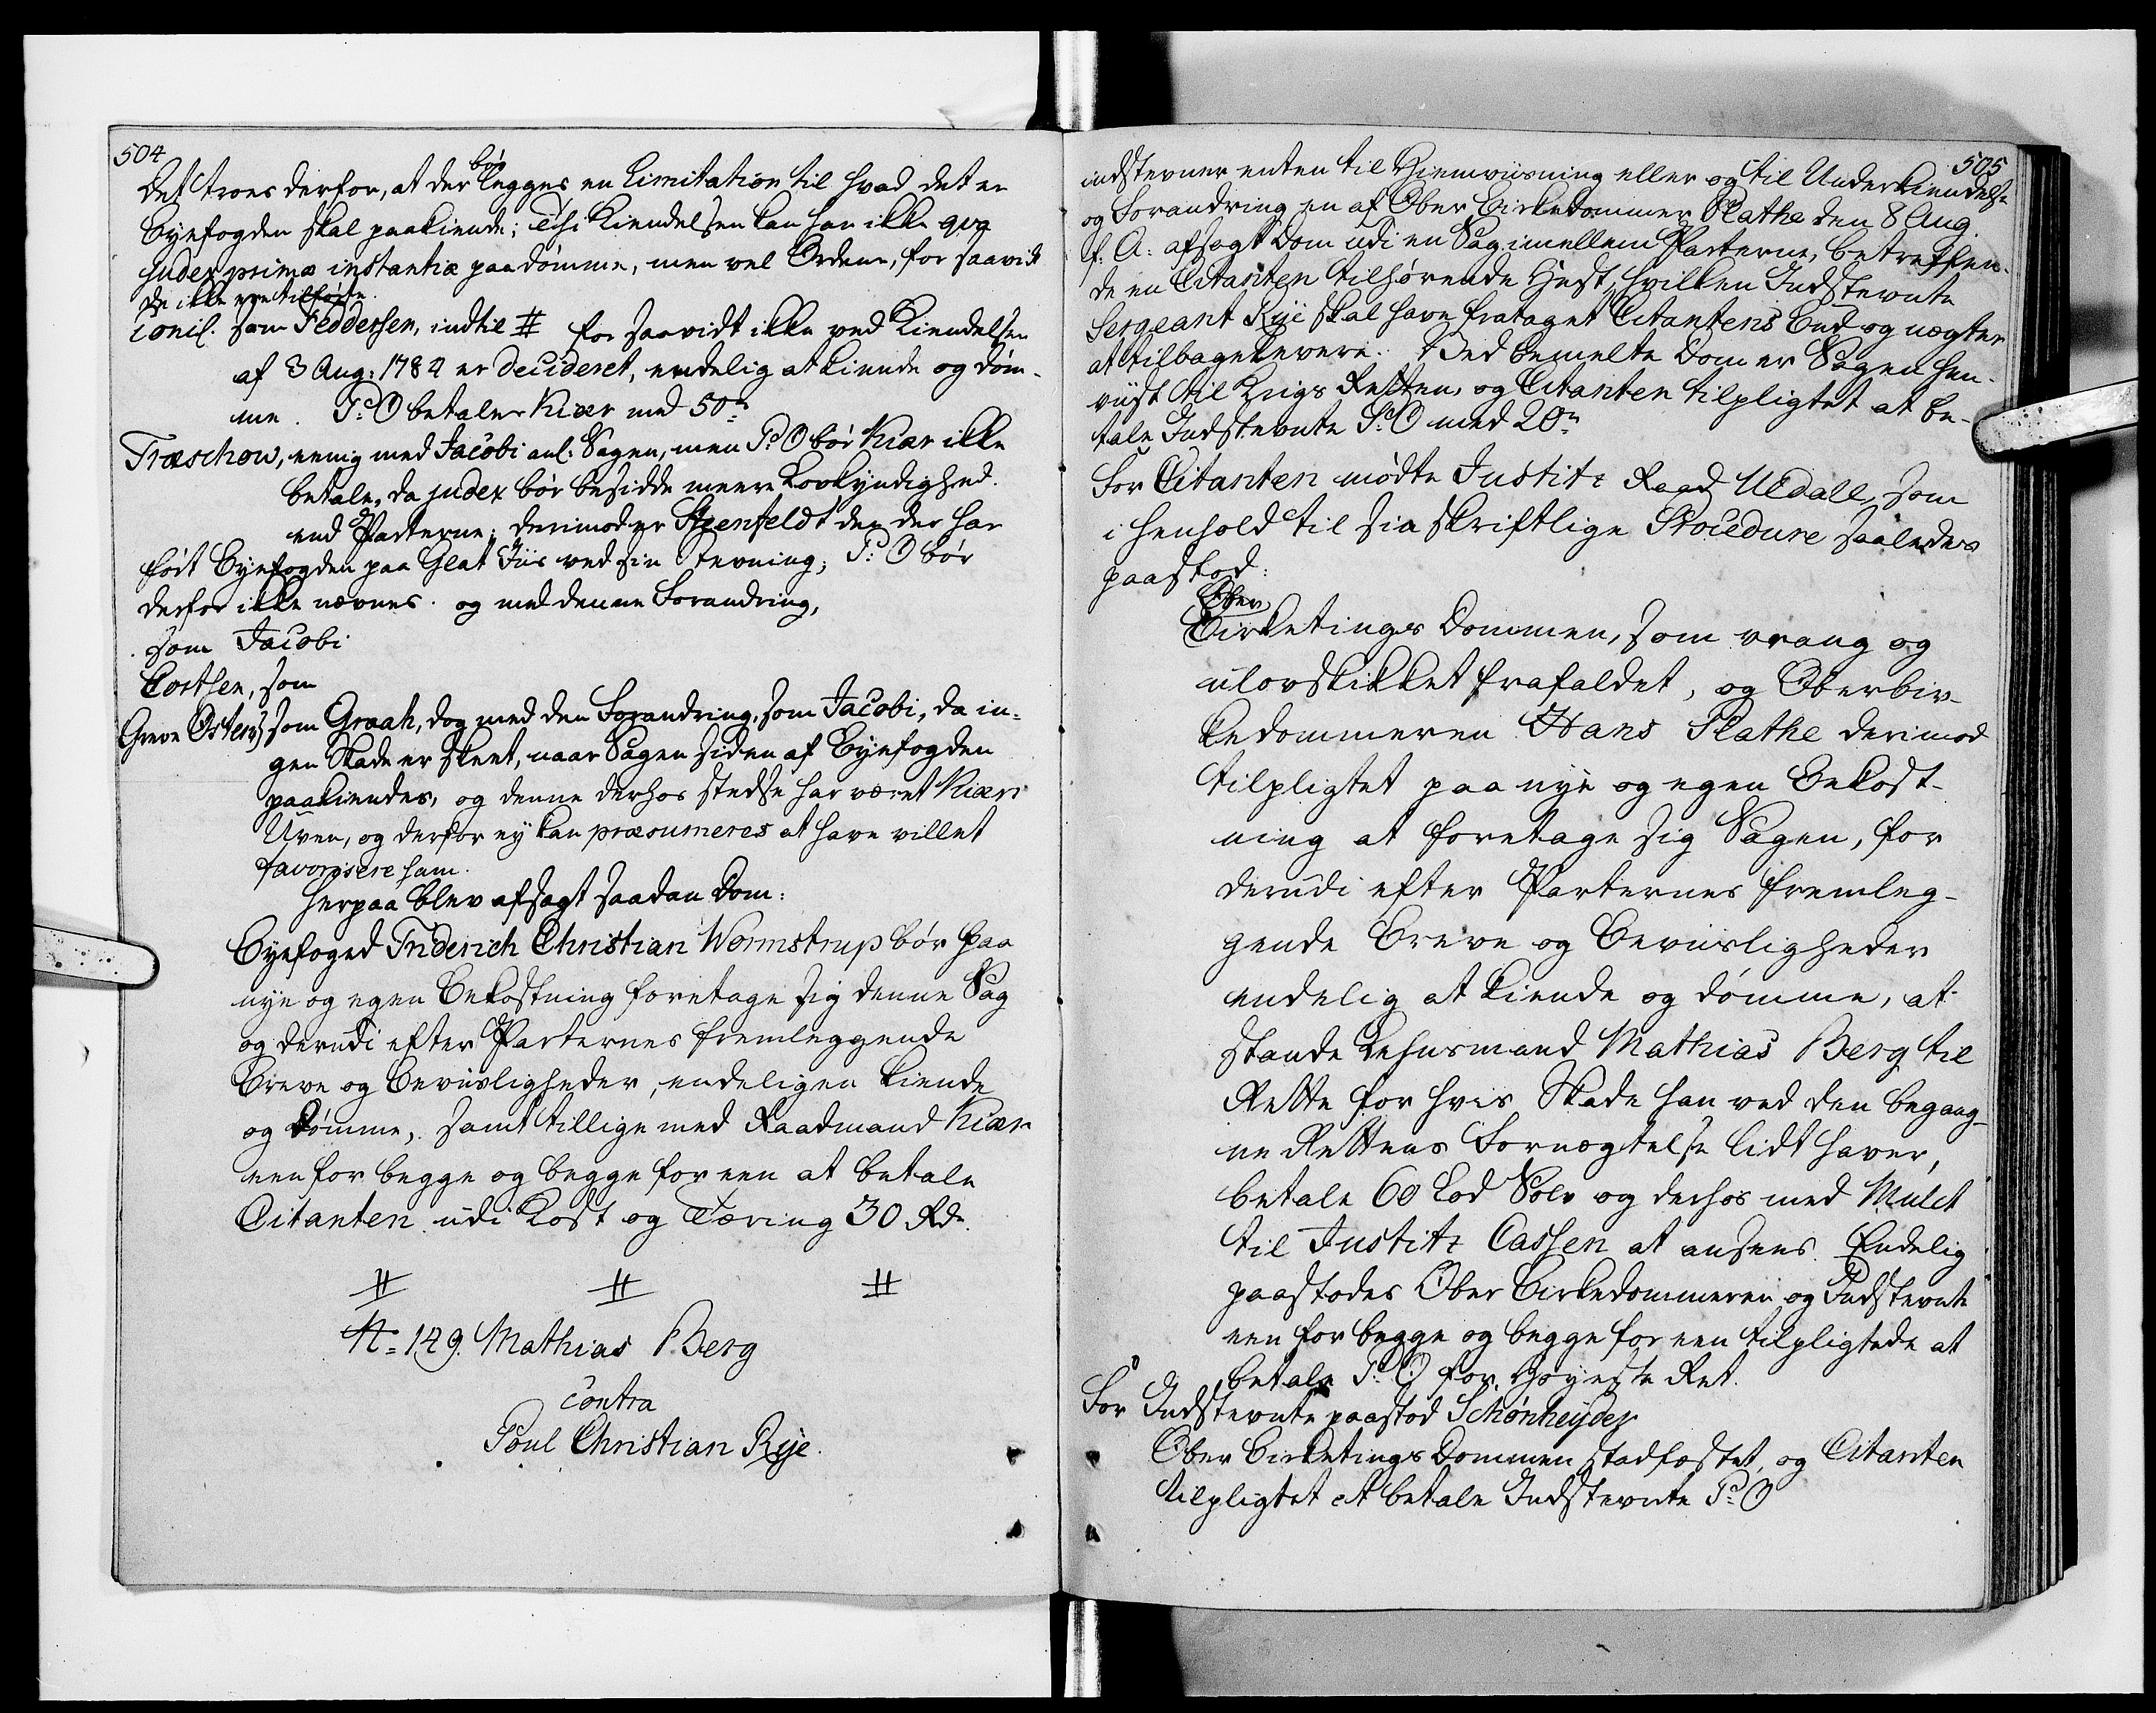 504
bør
det troes derfor, at der legges en Limitation til hvad det er
Byefogden skal paakiende; Thi Kiendelsen kan han ikke qva
Judex primæ instantiæ paadømme, men vel Ordene, for saavidt
de ikke ere tilførte.
som Feddersen, indtil # for saavidt ikke ved Kiendelsen
af 3 Aug: 1784 er decideret, endelig at kiende og døm-
me. P: O betaler Kiær med 50
Træschow, eenig med Jacobi anl: Sagen, men P: O bør Kiær ikke
betale, da judex bør besidde meere Lovkyndighed
end Parterne; derimod er Steenfeldt den der har
ført Byefogden paa Glat Iis ved sin Stevning; P: O bør
derfor ikke nævnes. og med denne Forandring,
som Jacobi
Cortsen, som
Greve Osten, som Graah, dog med den Forandring, som Jacobi, da in-
gen Skade er skeet, naar Sagen siden af Byefogden
paakiendes, og denne derhos stedse har været Kiærs
Uven, og derfor ey kan præsumeres at have villet
favorisere ham.
Herpaa blev afsagt saadan Dom:
Byefoged Friderich Christian Wormstrup bør paa
nye og egen Bekostning foretage sig denne Sag
og derudi efter Parternes fremleggende
Breve og Beviisligheder, endeligen kiende
og dømme, samt tillige med Raadmand Kiær
een for begge og begge for een at betale
Citanten udi Kost og Tæring 30 Rd.
# # #
N: 149. Mathias Berg
contra
Poul Christian Rye.
505
indstevner enten til Hiemviisning eller og til Underkiendelse
og Forandring en af Ober Birkedommer Plathe den 8 Aug.
f: A: afsagt Dom udi en Sag imellem Parterne, betreffen-
de en Citanten tilhørende Hest, hvilken Indstevnte
Sergeant Rye skal have frataget Citantens Bud og nægter
at tilbagelevere. Ved bemelte Dom er Sagen hen-
viist til Krigs Retten, og Citanten tilpligtet at be-
tale Indstevnte P: O med 20
For Citanten mødte Justitz Raad Uldall, som
i henhold til sin skriftlige Procedure saaledes
paastod:
Ober
Birketings Dommen, som vrang og
ulovskikket frafaldet, og Oberbir-
kedommeren Hans Plathe derimod
tilpligtet paa nye og egen Bekost-
ning at foretage sig Sagen, for
derudi efter Parternes fremleg-
gende Breve og Beviisligheder
endelig at kiende og dømme, at
stande Lehnsmand Mathias Berg til
Rette for hvis Skade han ved den begaag-
ne Rettens Fornægtelse lidt haver,
betale 60 Lod Sølv og derhos med Mulct
til Justitz Cassen at ansees. Endelig
paastodes Ober Birkedommeren og Indstevnte
een for begge og begge for een tilpligtede at
betale P: O for Høyeste Ret.
For Indstevnte paastod Schønheyder
Ober Birketings Dommen stadfæstet, og Citanten
tilpligtet at betale Indstevnte P: O